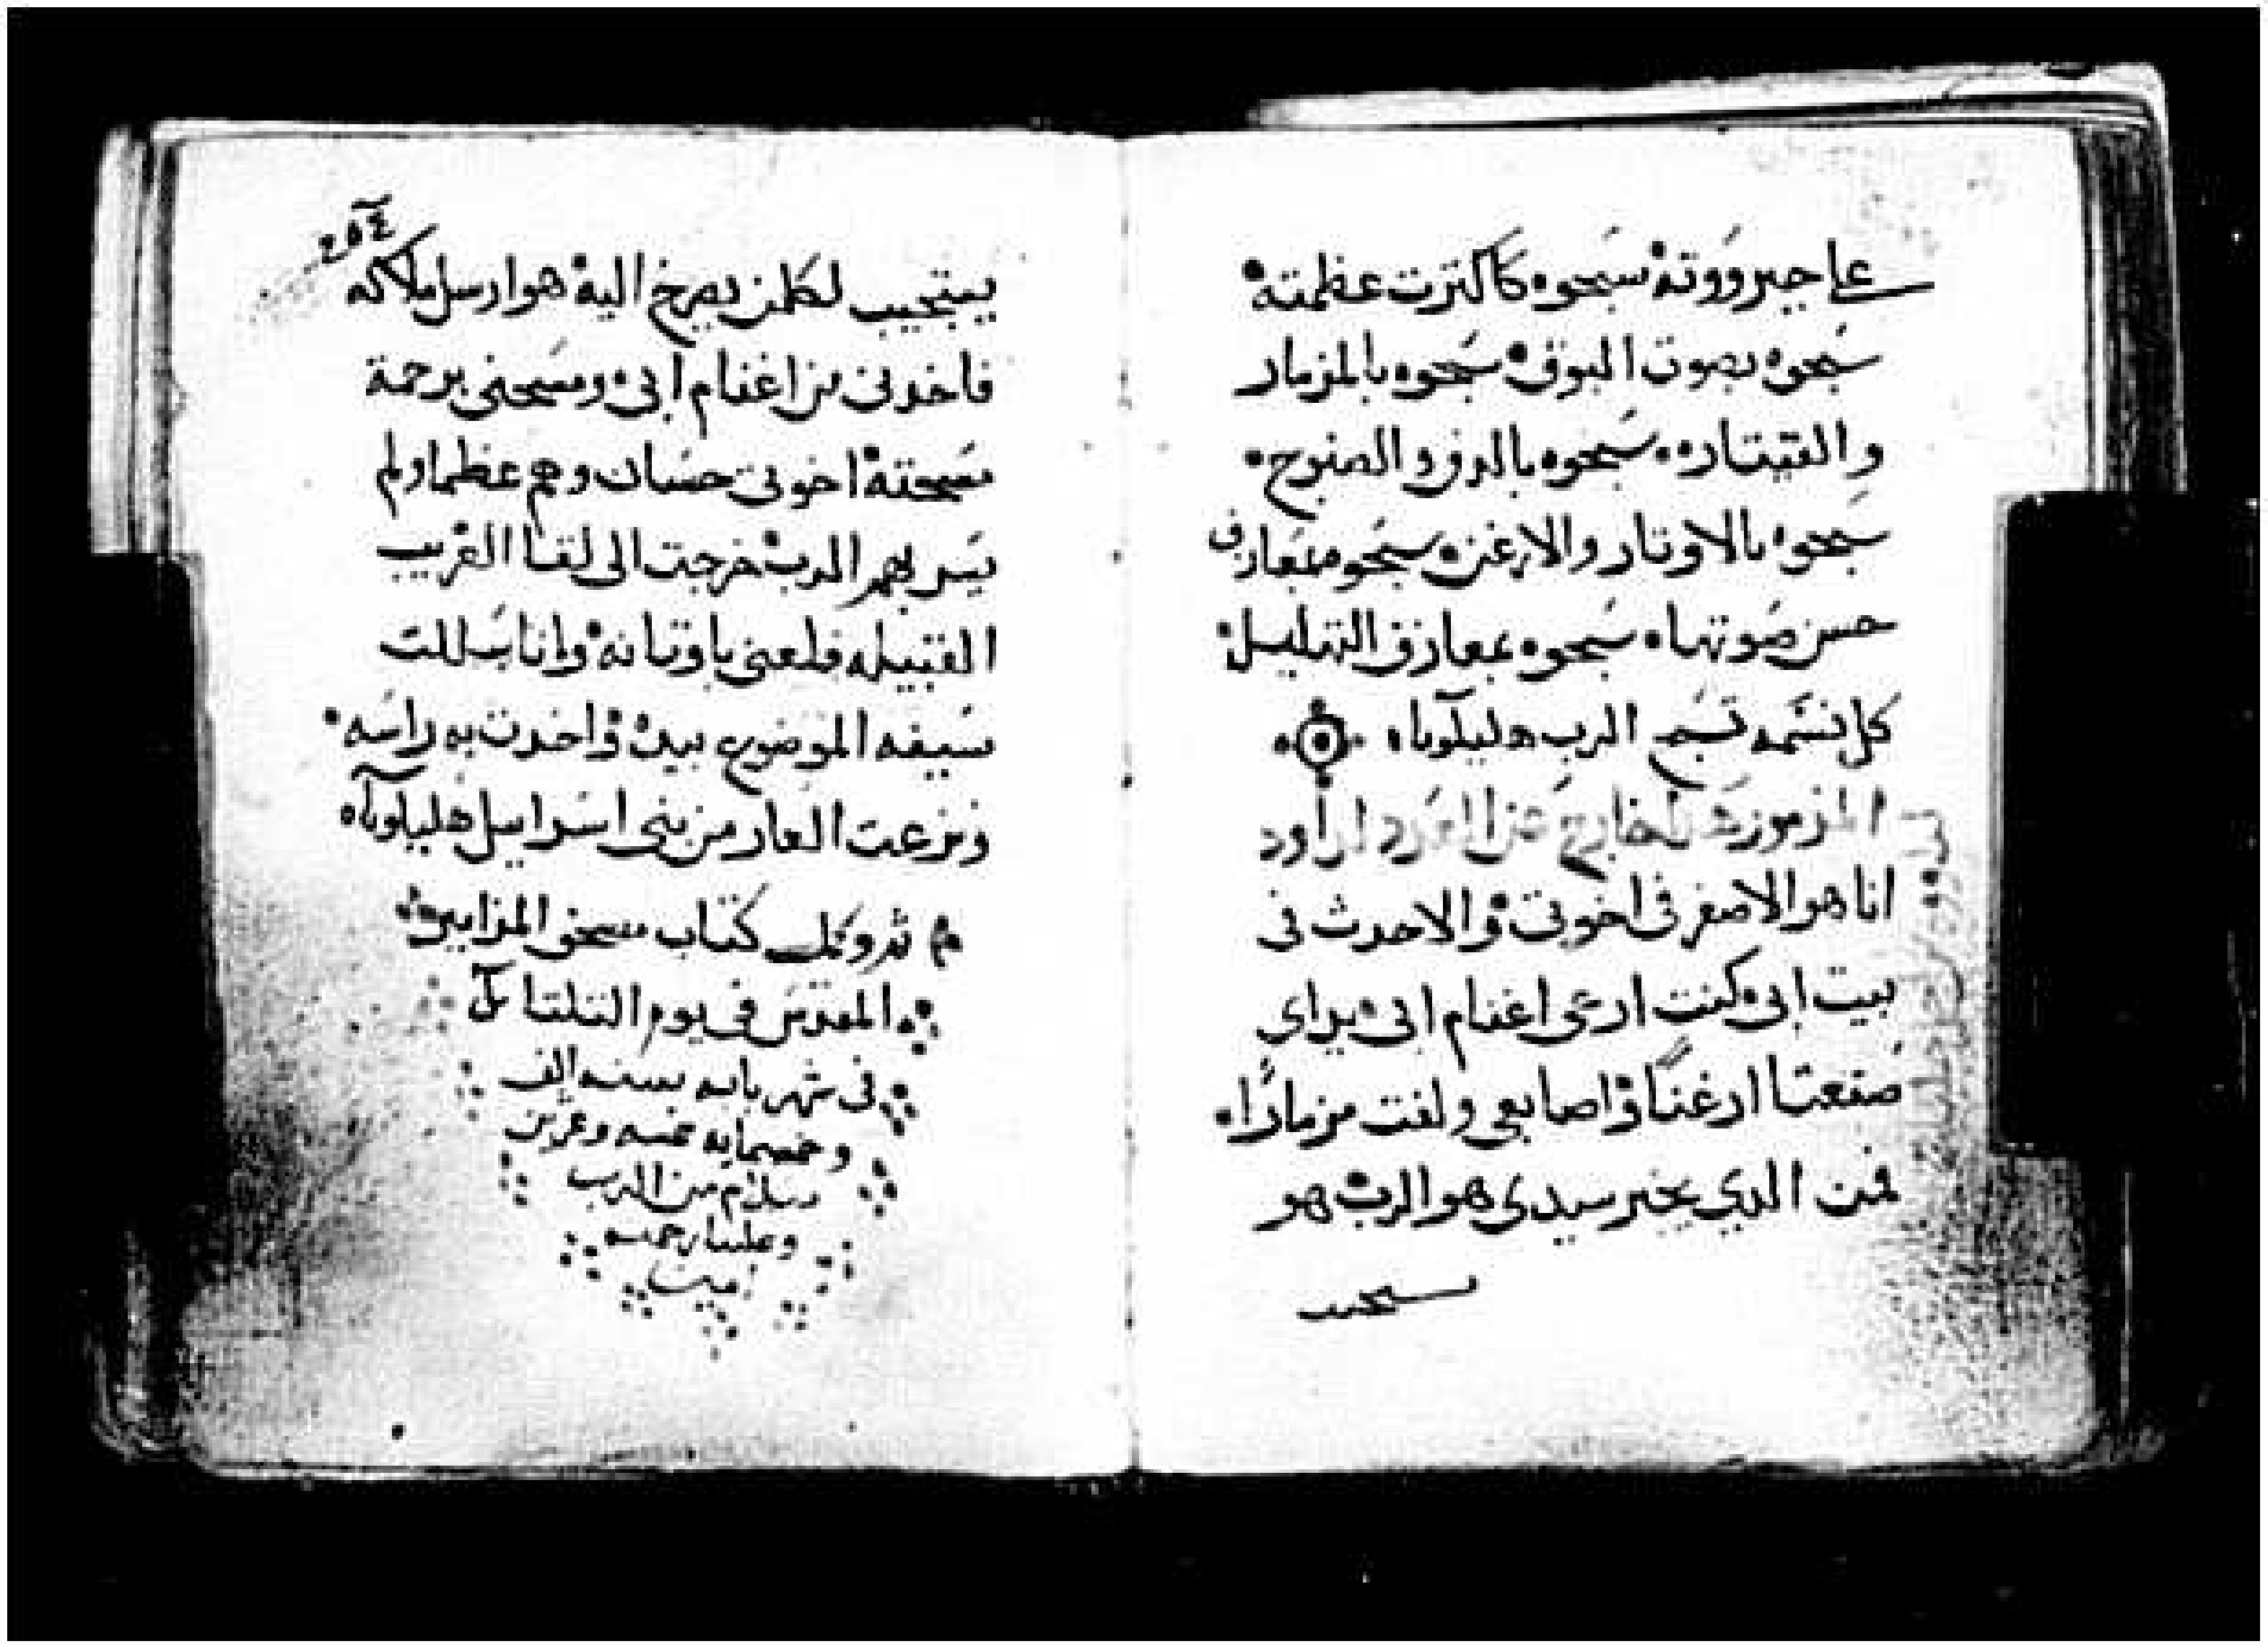 علي جبرووته سبحوه كاكترت عظمته
سبحوه بصوت البوق سبحوه بالمزمار
والقيتاره سبحوه بالدف والصنوج
سبحوه بالاوتار والارغن سبحوه بمعازف
حسن صوتها سبحوه بمعازف التهليل
كل نسمه تسبح الرب هليلويا
المزمور الخارج عن العدد لداود
انا هو الاصغر في اخوتي والاحدث في
بيت ابي كنت ارعي اغنام ابي يداي
صنعتا ارغنا واصابعي ولفت مزمارا
فمن الدي يخبر سيدي هو الرب هو
يستجيب
٢٥٤
يستجيب لكلمن يصرخ اليه هو ارسل ملاكه
فاخدني من اغنام ابي ومسحني برحمة
مسحته اخوتي حسان وهم عظما ولم
يسر بهم الرب خرجت الى لقا الغريب
القبيله فلعني باوتانه وانا سللت
سيفه الموضوع بيده واخدت به راسه
ونزعت العار من بني اسراييل هليلويا
تم وكمل كتاب مصحف المزامير
المقدس في يوم التلتا
في شهر بابه بسنه الف
وخمسمايه خمسه وعشرين
وسلام من الرب
وعلينا رحمته
امين